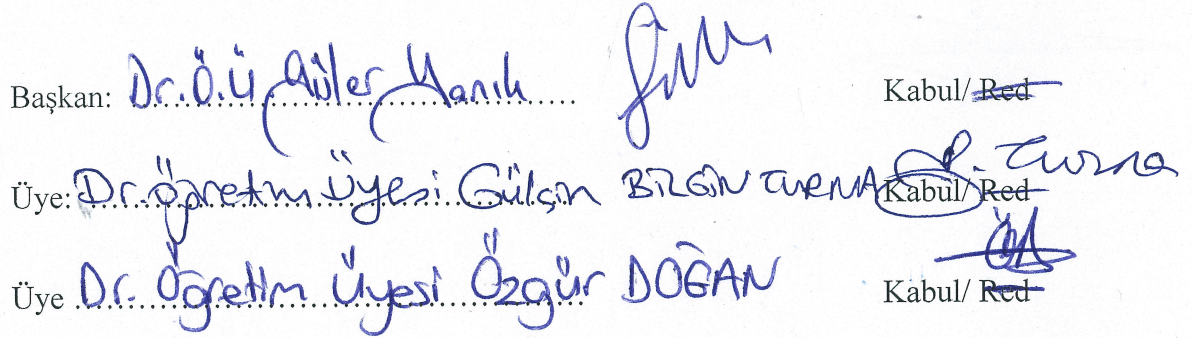 Başkan: Dr. Ö.Ü. Güler Yanık Kabul/ Red
Üye: Dr. Öğretim Üyesi Gülçin BİLGİN TURNA Kabul/ Red
Üye Dr. Öğretim Üyesi Özgür DOĞAN Kabul/ Red